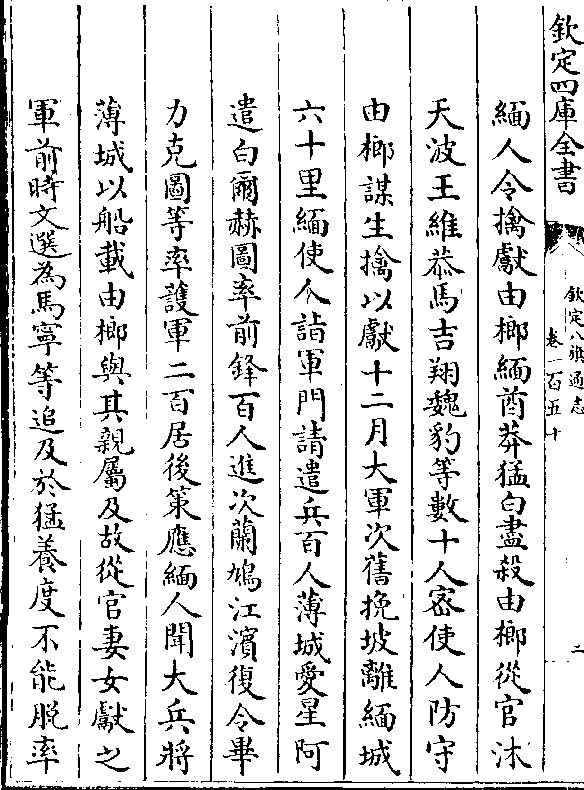 欽定四庫全書
欽定八旗通志
卷一百五十
二
緬人令擒獻由榔緬酋莽猛白盡殺由榔從官沐
天波王維恭馬吉翔魏豹等數十人密使人防守
由榔謀生擒以獻十二月大軍次舊挽坡離緬城
六十里緬使人詣軍門請遣兵百人薄城愛星阿
遣白爾赫圖率前鋒百人進次蘭鳩江濱復令畢
力克圖等率護軍二百居後策應緬人聞大兵將
薄城以船載由榔與其親屬及故從官妻女獻之
軍前時文選為馬寧等追及於猛養度不能脫率